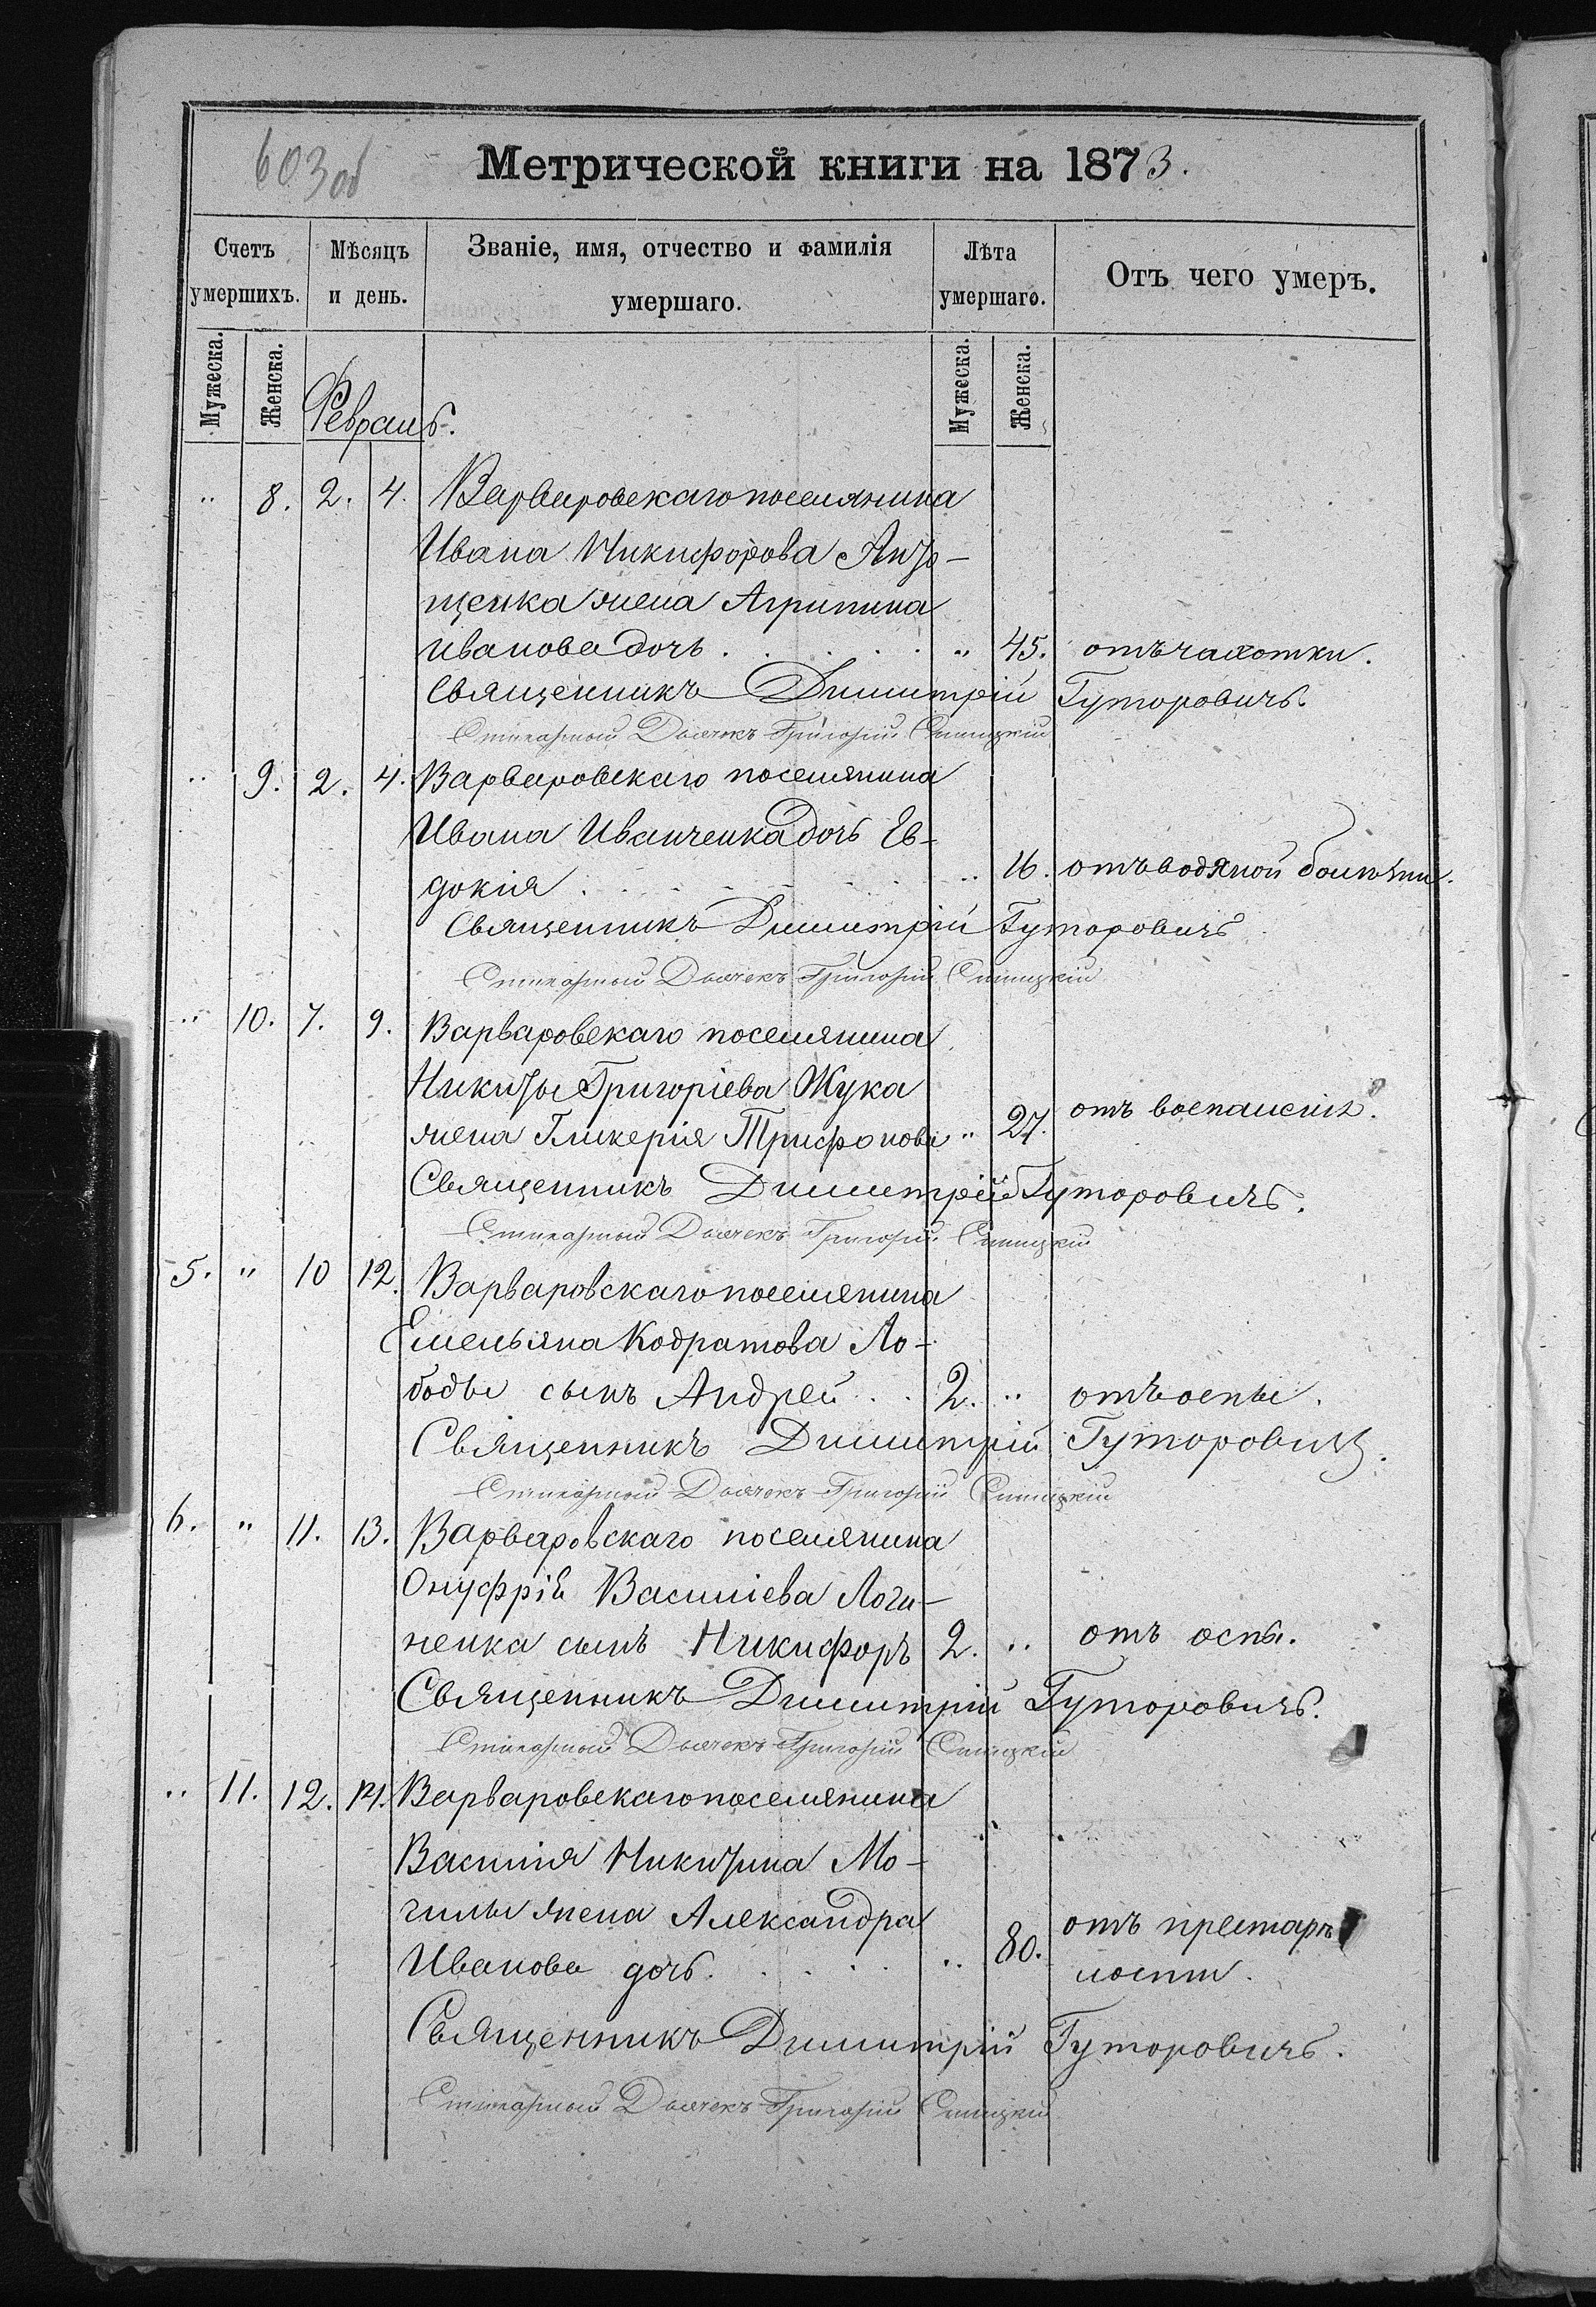 603об
Метрической книги на 1873.
Счетъ умершихъ. Мѣсяцъ и день. Званіе, имя, отчество и фамилія умершаго. Лѣта умершаго. Отъ чего умеръ.
Мужеска. Женска. Мужеска. Женска.
Февраль.
" 8. 2. 4. Варваровскаго поселянина
Ивана Никифорова Анто-
щенка жена Агрипина
Иванова дочь . . . . . . " 45. отъ чахотки.
Священникъ Димитрій Гуторовичъ.
Стихарный Дьячекъ Григорій
" 9. 2. 4. Варваровскаго поселянина
Ивана Иванченка дочь Ев-
докія . . . . . . . " 16. отъ водяной болѣзни.
Священникъ Димитрій Гуторовичъ
Стихарный Дьячекъ Григорій
" 10. 7. 9. Варваровскаго поселянина
Никиты Григоріева Жука
жена Гликерія Трифонова " 27. отъ воспаленія.
Священникъ Димитрій Гуторовичъ.
Стихарный Дьячекъ Григорій
5. " 10 12. Варваровскаго поселянина
Емельяна Кодратова Ло-
боды сынъ Андрей . . 2. " отъ оспы.
Священникъ Димитрій Гуторовичъ.
Стихарный Дьячекъ Григорій
6. " 11. 13. Варваровскаго поселянина
Онуфрія Василіева Логи-
ненка сынъ Никифоръ 2. " отъ оспы.
Священникъ Димитрій Гуторовичъ.
Стихарный Дьячекъ Григорій
" 11. 12. 14. Варваровскаго поселянина
Василія Никитина Мо-
гилы жена Александра
Иванова дочь . . . . . " 80. отъ престарѣ
лости.
Священникъ Димитрій Гуторовичъ.
Стихарный Дьячекъ Григорій